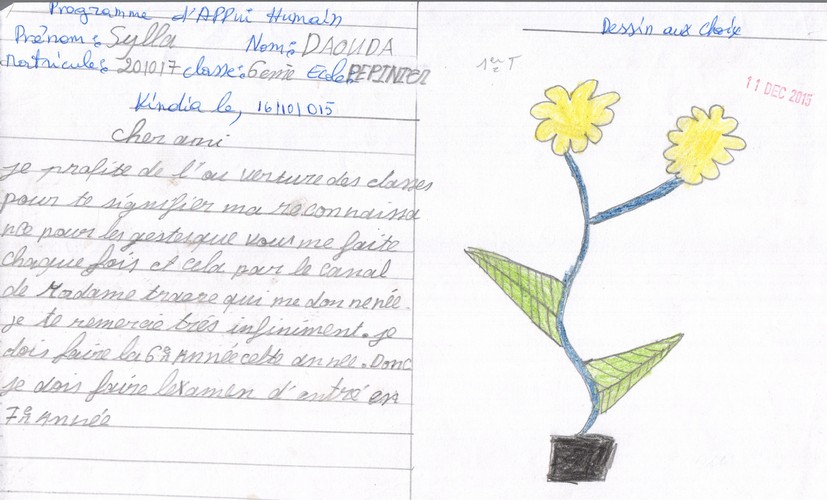 Programme d'APPui Humain
Prénom: Sylla Nom: DAOUDA
Matricule: 201017 classe: 6eme Ecole PEPINIER
Kindia le, 16/10/015
cher ami
je profite de l'ou verture des classes
pour te signifier ma reconnaissa
nce pour les gesteque vous me faite
chaque fois et cela par le canal
de Madame traore qui me don nenée.
je te remercie trés infiniment. je
dois faire la 6è Année cette année. Donc
je dois faire l'examen d'entré en
7è Année
Dessin aux choix
1er T
11 DEC 2015